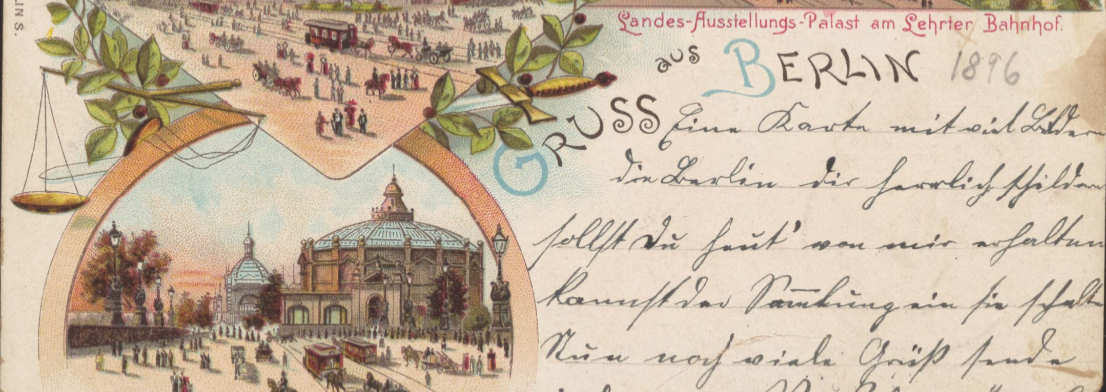 LIN S.
Landes-Ausstellungs-Palast am Lehrter Bahnhof.
GRUSS aus BERLIN 1896
Eine Karte mit viel Bildern
die Berlin dir herrlich schildern
sollst Du heut' von mir erhalten
kannst der Sammlung ein sie schalten
Nun noch viele Grüß sende